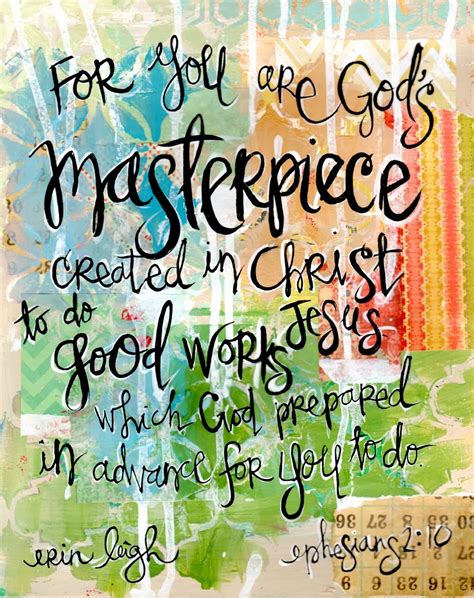 For You are God's
masterpiece
created in Christ
Jesus
to do
good works
which God prepared
in advance for you to do.
erin leigh
ephesians 2:10